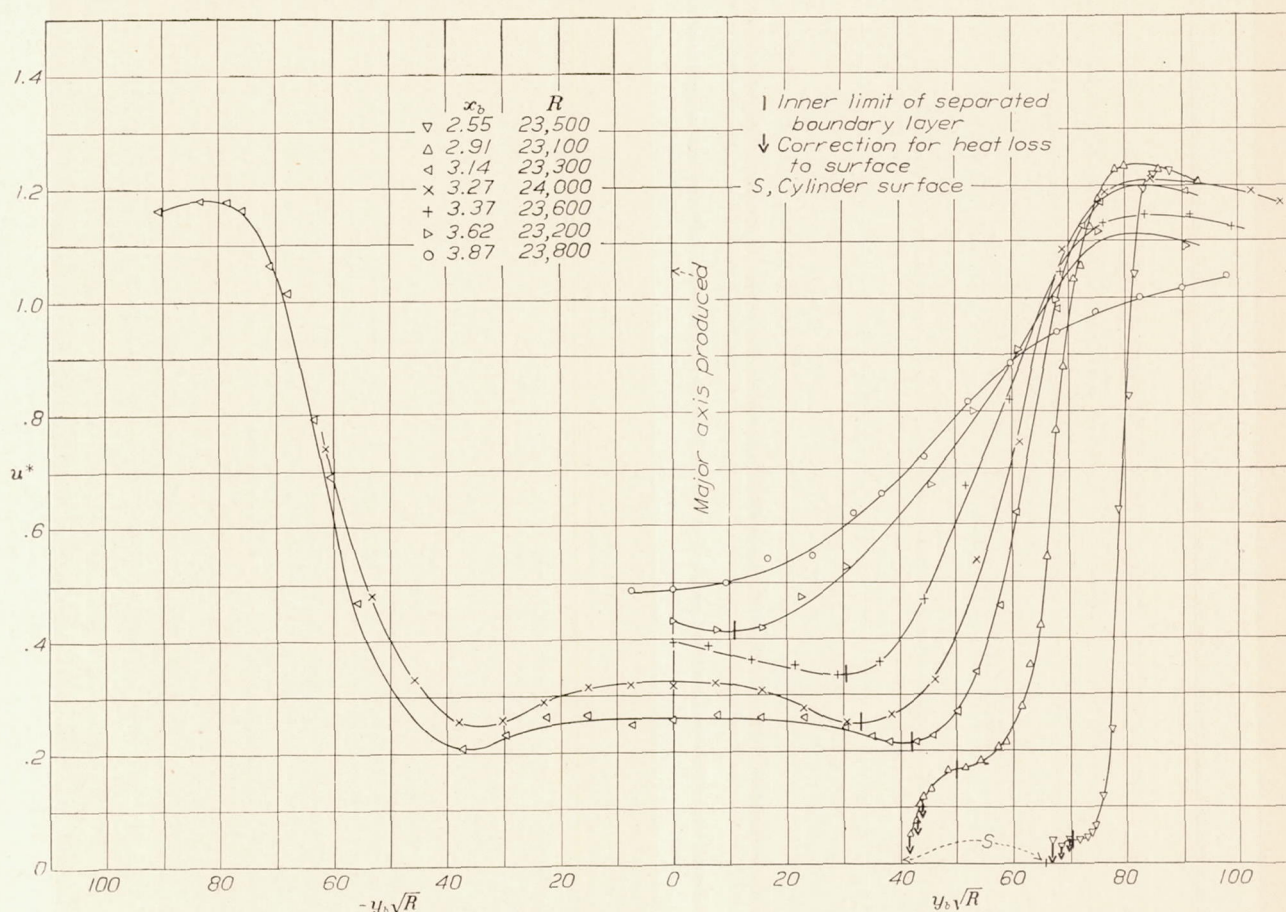 1.4
1.2
1.0
.8
u*
.6
.4
.2
0
x_b R
▽ 2.55 23,500
△ 2.91 23,100
◁ 3.14 23,300
× 3.27 24,000
+ 3.37 23,600
▷ 3.62 23,200
○ 3.87 23,800
| Inner limit of separated
boundary layer
↓ Correction for heat loss
to surface
S, Cylinder surface
Major axis produced
S
100 80 60 40 20 0 20 40 60 80 100
-y_b√R y_b√R